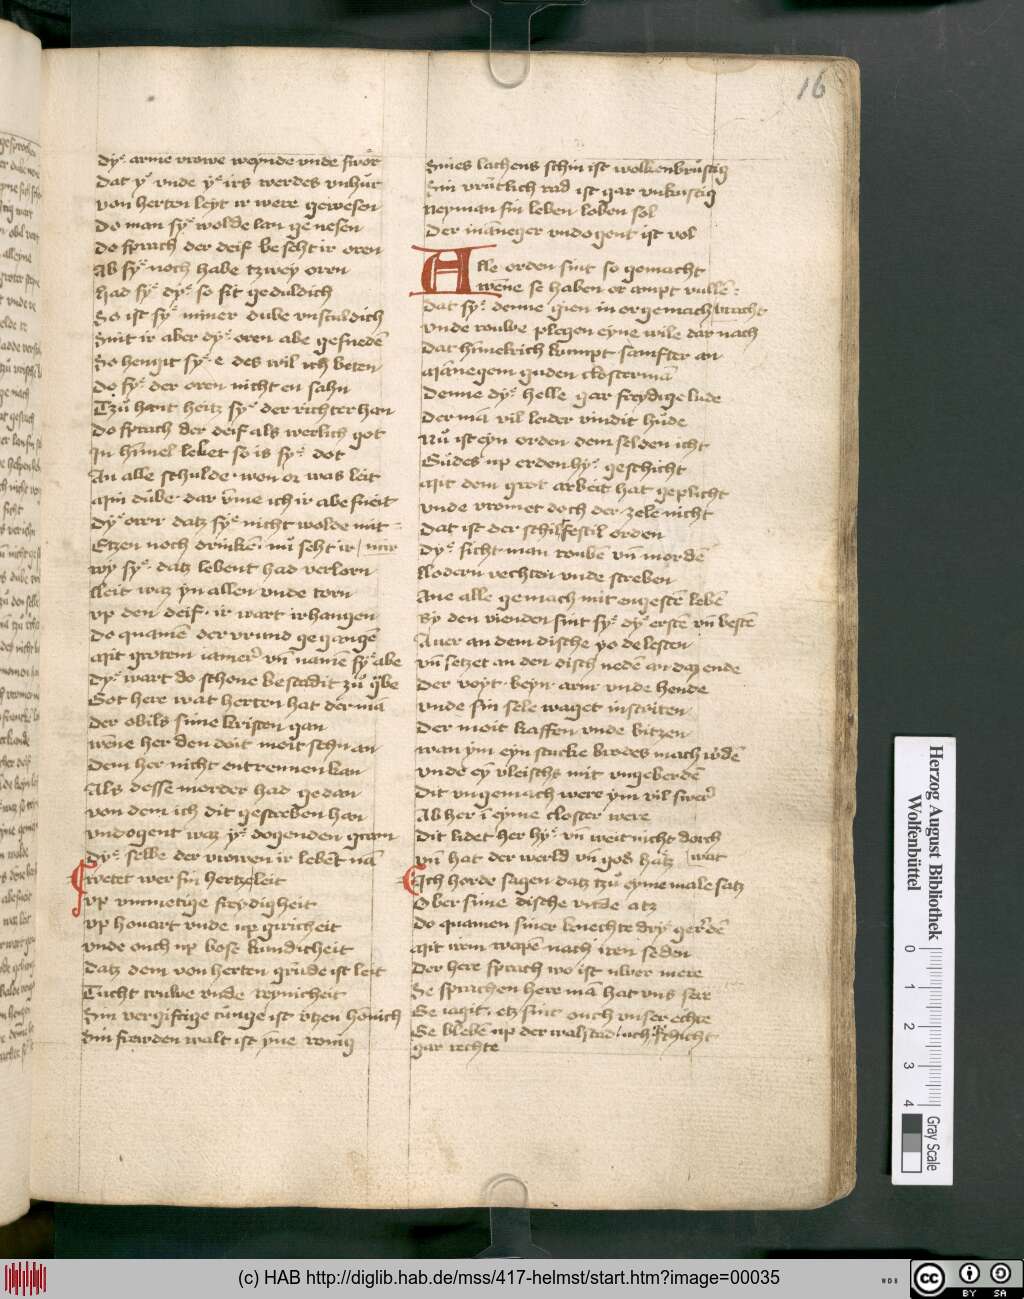 16
dyͤ arme vrowe weynde vnde swor
dat yͤ vnde yͤ irs werdes vnhur
von herten leyt ir were gewesen
do man syͤ wolde lan ge nesen
do sprach der deif be seht ir oren
Ab syͤ noch habe tzwey oren
had syͤ dyͤ so sit geduldich
So ist syͤ miner dube vnsculdich
Sint ir aber dyͤ oren abe gesneden
So hengit syͤ e des wil ich beten
do syͤ der oren nicht en sahn
Tzu hant heitz syͤ der richter han
do sprach der deif als werlich got
In himel lebet so is syͤ dot
An alle schulde won or was leit
Min dube dar vme ich ir abe sneit
dyͤ oren datz syͤ nicht wolde mit
Etzen noch drinken nu seht ir mir
wy syͤ datz lebent had verlorn
Leit waz yn allen vnde torn
vp den deif ir wart irhangen
do quamen der vrund gegangen
Mit grotem iamer vn namen syͤ abe
dyͤ wart do schone bestadit zu grabe
Got here wat herten hat der man
der obils sime kristen gan
wenne her den doit moit sehn an
dem her nicht entrennen kan
Als desse morder had gedan
von dem ich dit gescreben han
vndogent waz yͤ dogenden gram
dyͤ selbe der vrowen ir lebet nam
wetet wer sin hertzeleit
vp vnmetige freydigheit
vp houart vnde vp giricheit
vnde ouch vp bose kundicheit
datz dem von herten grunde ist leit
Tucht truwe vnde reynicheit
Sin vergiftige tunge ist vtzen honich
Sin frowden walt ist yme wonig
Sines lachens schin ist wolkenbrustig
Sin vrutlich rad ist gar vnkustig
Neyman sin leben loben sol
Der maneger vndogent ist vol
Alle orden sint so gemacht
wenne se haben or ampt vullen
dat syͤ denne gien in or gemach bracht
vnde rouwe plegen eyne wile dar nach
Dat himelrich kumpt samfter an
Manegem guden closterman
Denne dyͤ helle gar freydige lude
Der man vil leider vindit hude
Nu ist eyn orden dem selden icht
Gudes vp erden hyͤ geschicht
Mit dem grot arbeit hat geplicht
vnde vromet doch der zele nicht
Dat ist der schiltfestil orden
dyͤ sicht man rouben vn morden
Flodern vechten vnde streben
Ane alle gemach mit engesten leben
By den vienden sint syͤ dyͤ ersten vn besten
Auer an dem dische yo de lesten
vn setzet an den disch neden an daz ende
Der voyt beyn arm vnde hende
vnde sin sele waget in striten
Der moit kaffen vnde bitzen
wan ym eyn stucke brodes mach werden
vnde eyn vleischs mit vngeberden
Dit vngemach were ym vil swer
Ab her in eyme closter were
Dit lidet her hyͤ vn weit nicht dorch wat
vn hat der werld vn gods hatz
Ich horde sagen datz tzu eyme male satz
Ober sime dische vnde atz
Do quamen siner knechte dry gerden
Mit irem wapen nach iren seden
Der here sprach wo ist uwer mere
Se sprachen here man hat vns ser
Ge iagit etz sint ouch vnser echte
Se bleben vp der walstad uch schicht
gar rechte
Herzog August Bibliothek
Wolfenbüttel
0 1 2 3 4
Gray Scale
(c) HAB http://diglib.hab.de/mss/417-helmst/start.htm?image=00035
WDB
cc BY SA